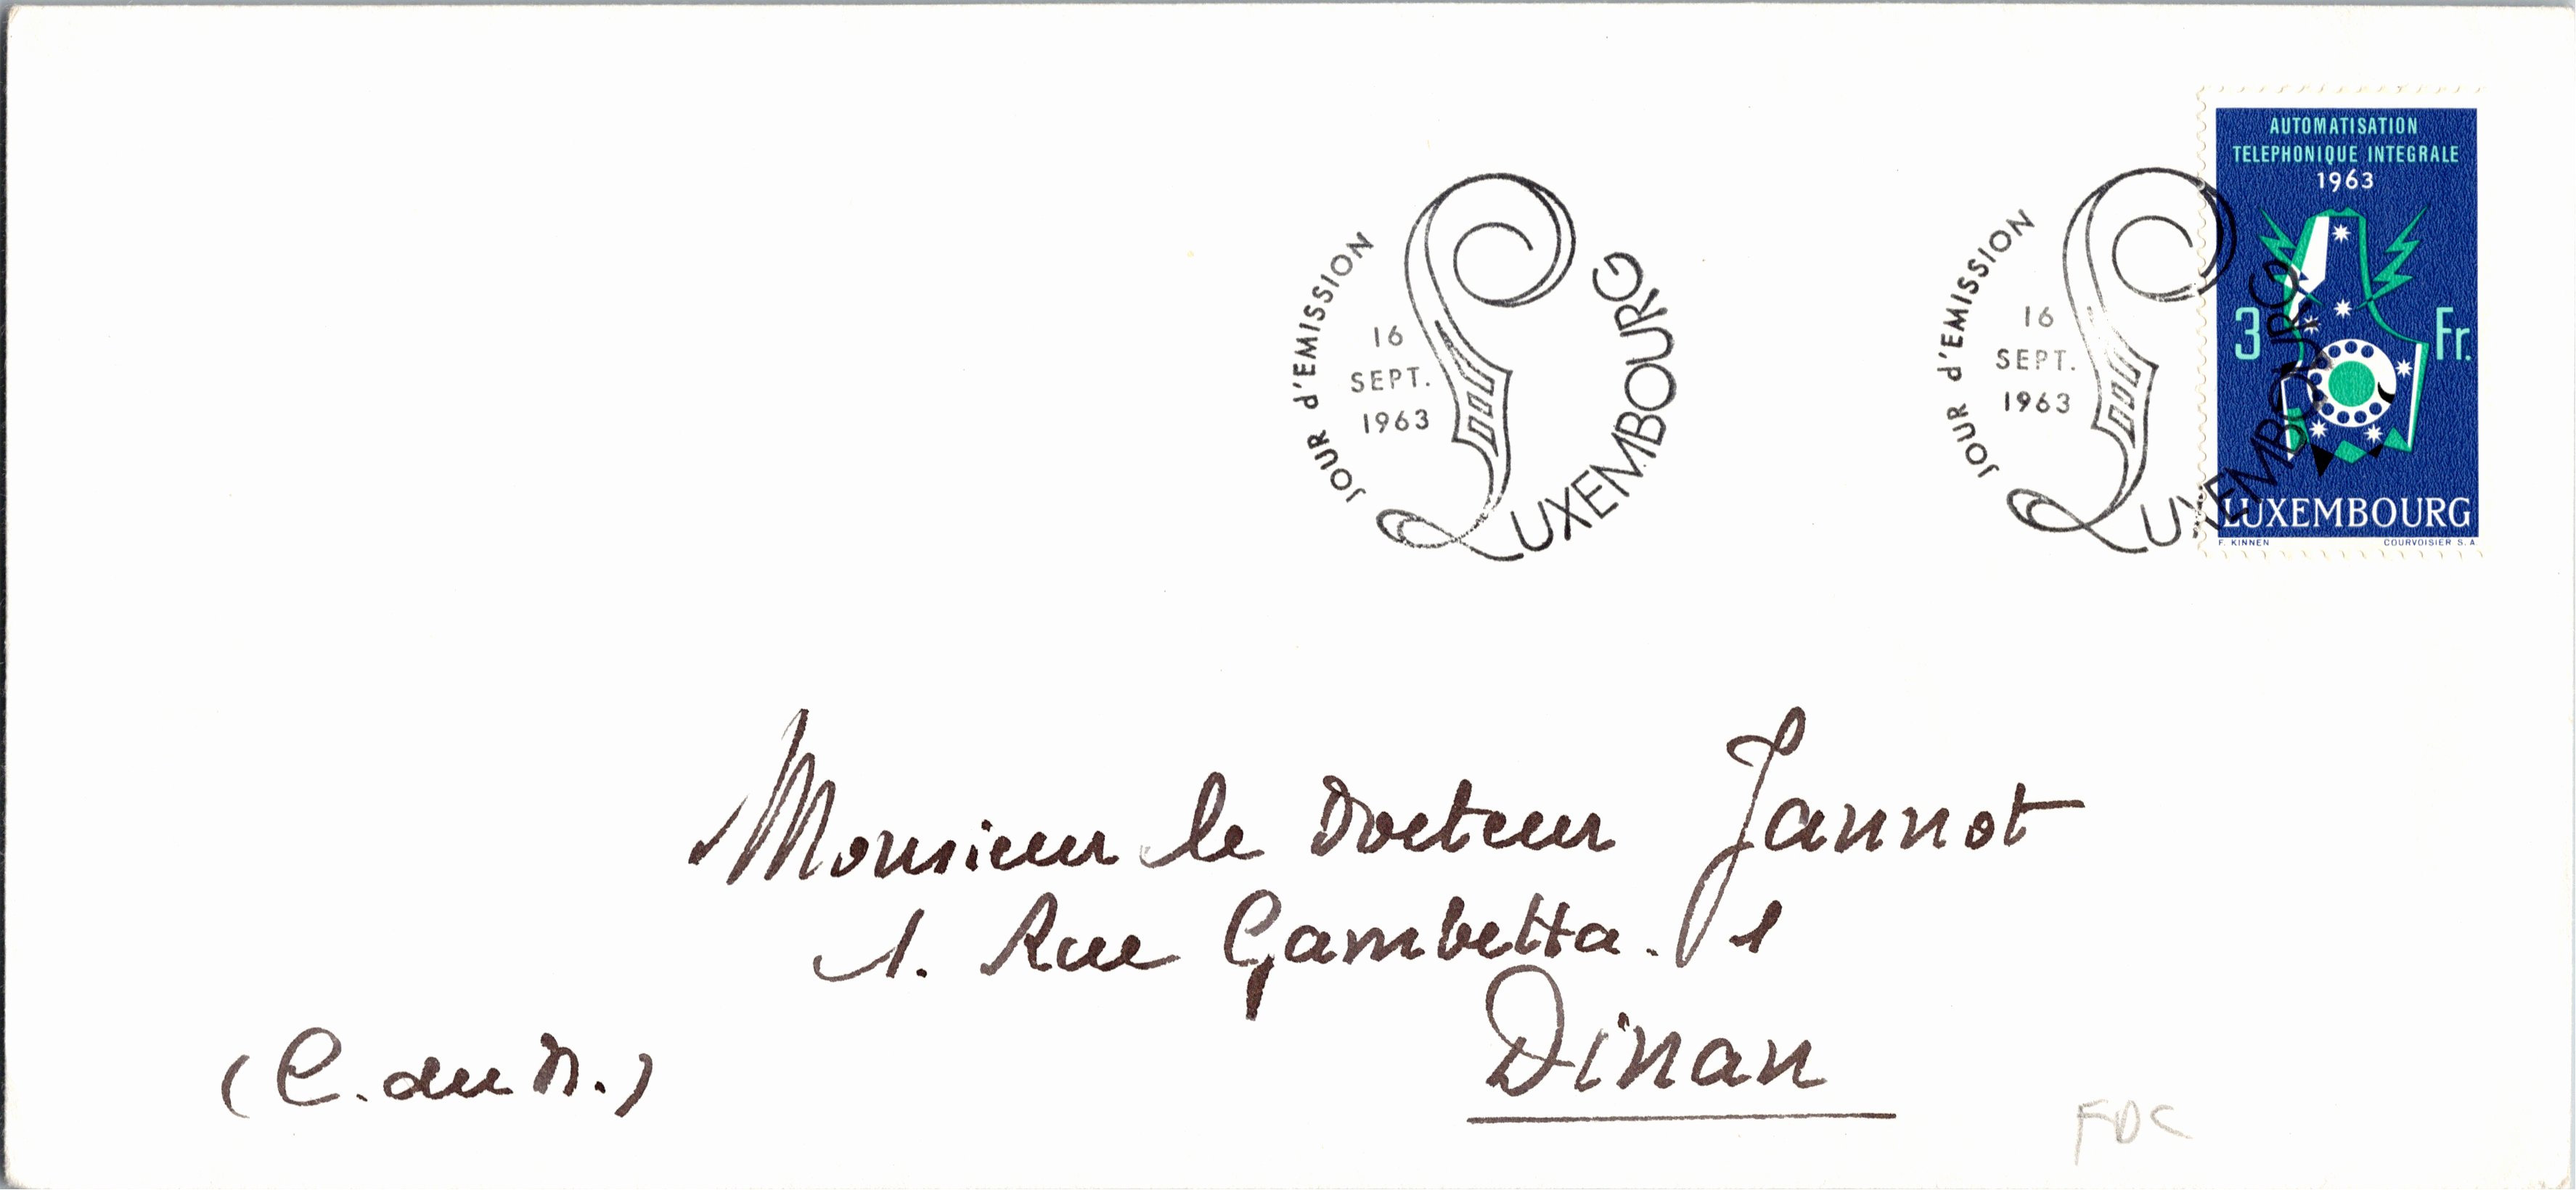 JOUR d'EMISSION
16
SEPT.
1963
LUXEMBOURG
JOUR d'EMISSION
16
SEPT.
1963
LUXEMBOURG
AUTOMATISATION
TELEPHONIQUE INTEGRALE
1963
3 Fr.
LUXEMBOURG
F. KINNEN COURVOISIER S.A
Monsieur le Docteur Jannot
1. Rue Gambetta. 1
Dinan
(C. du N.)
FDC